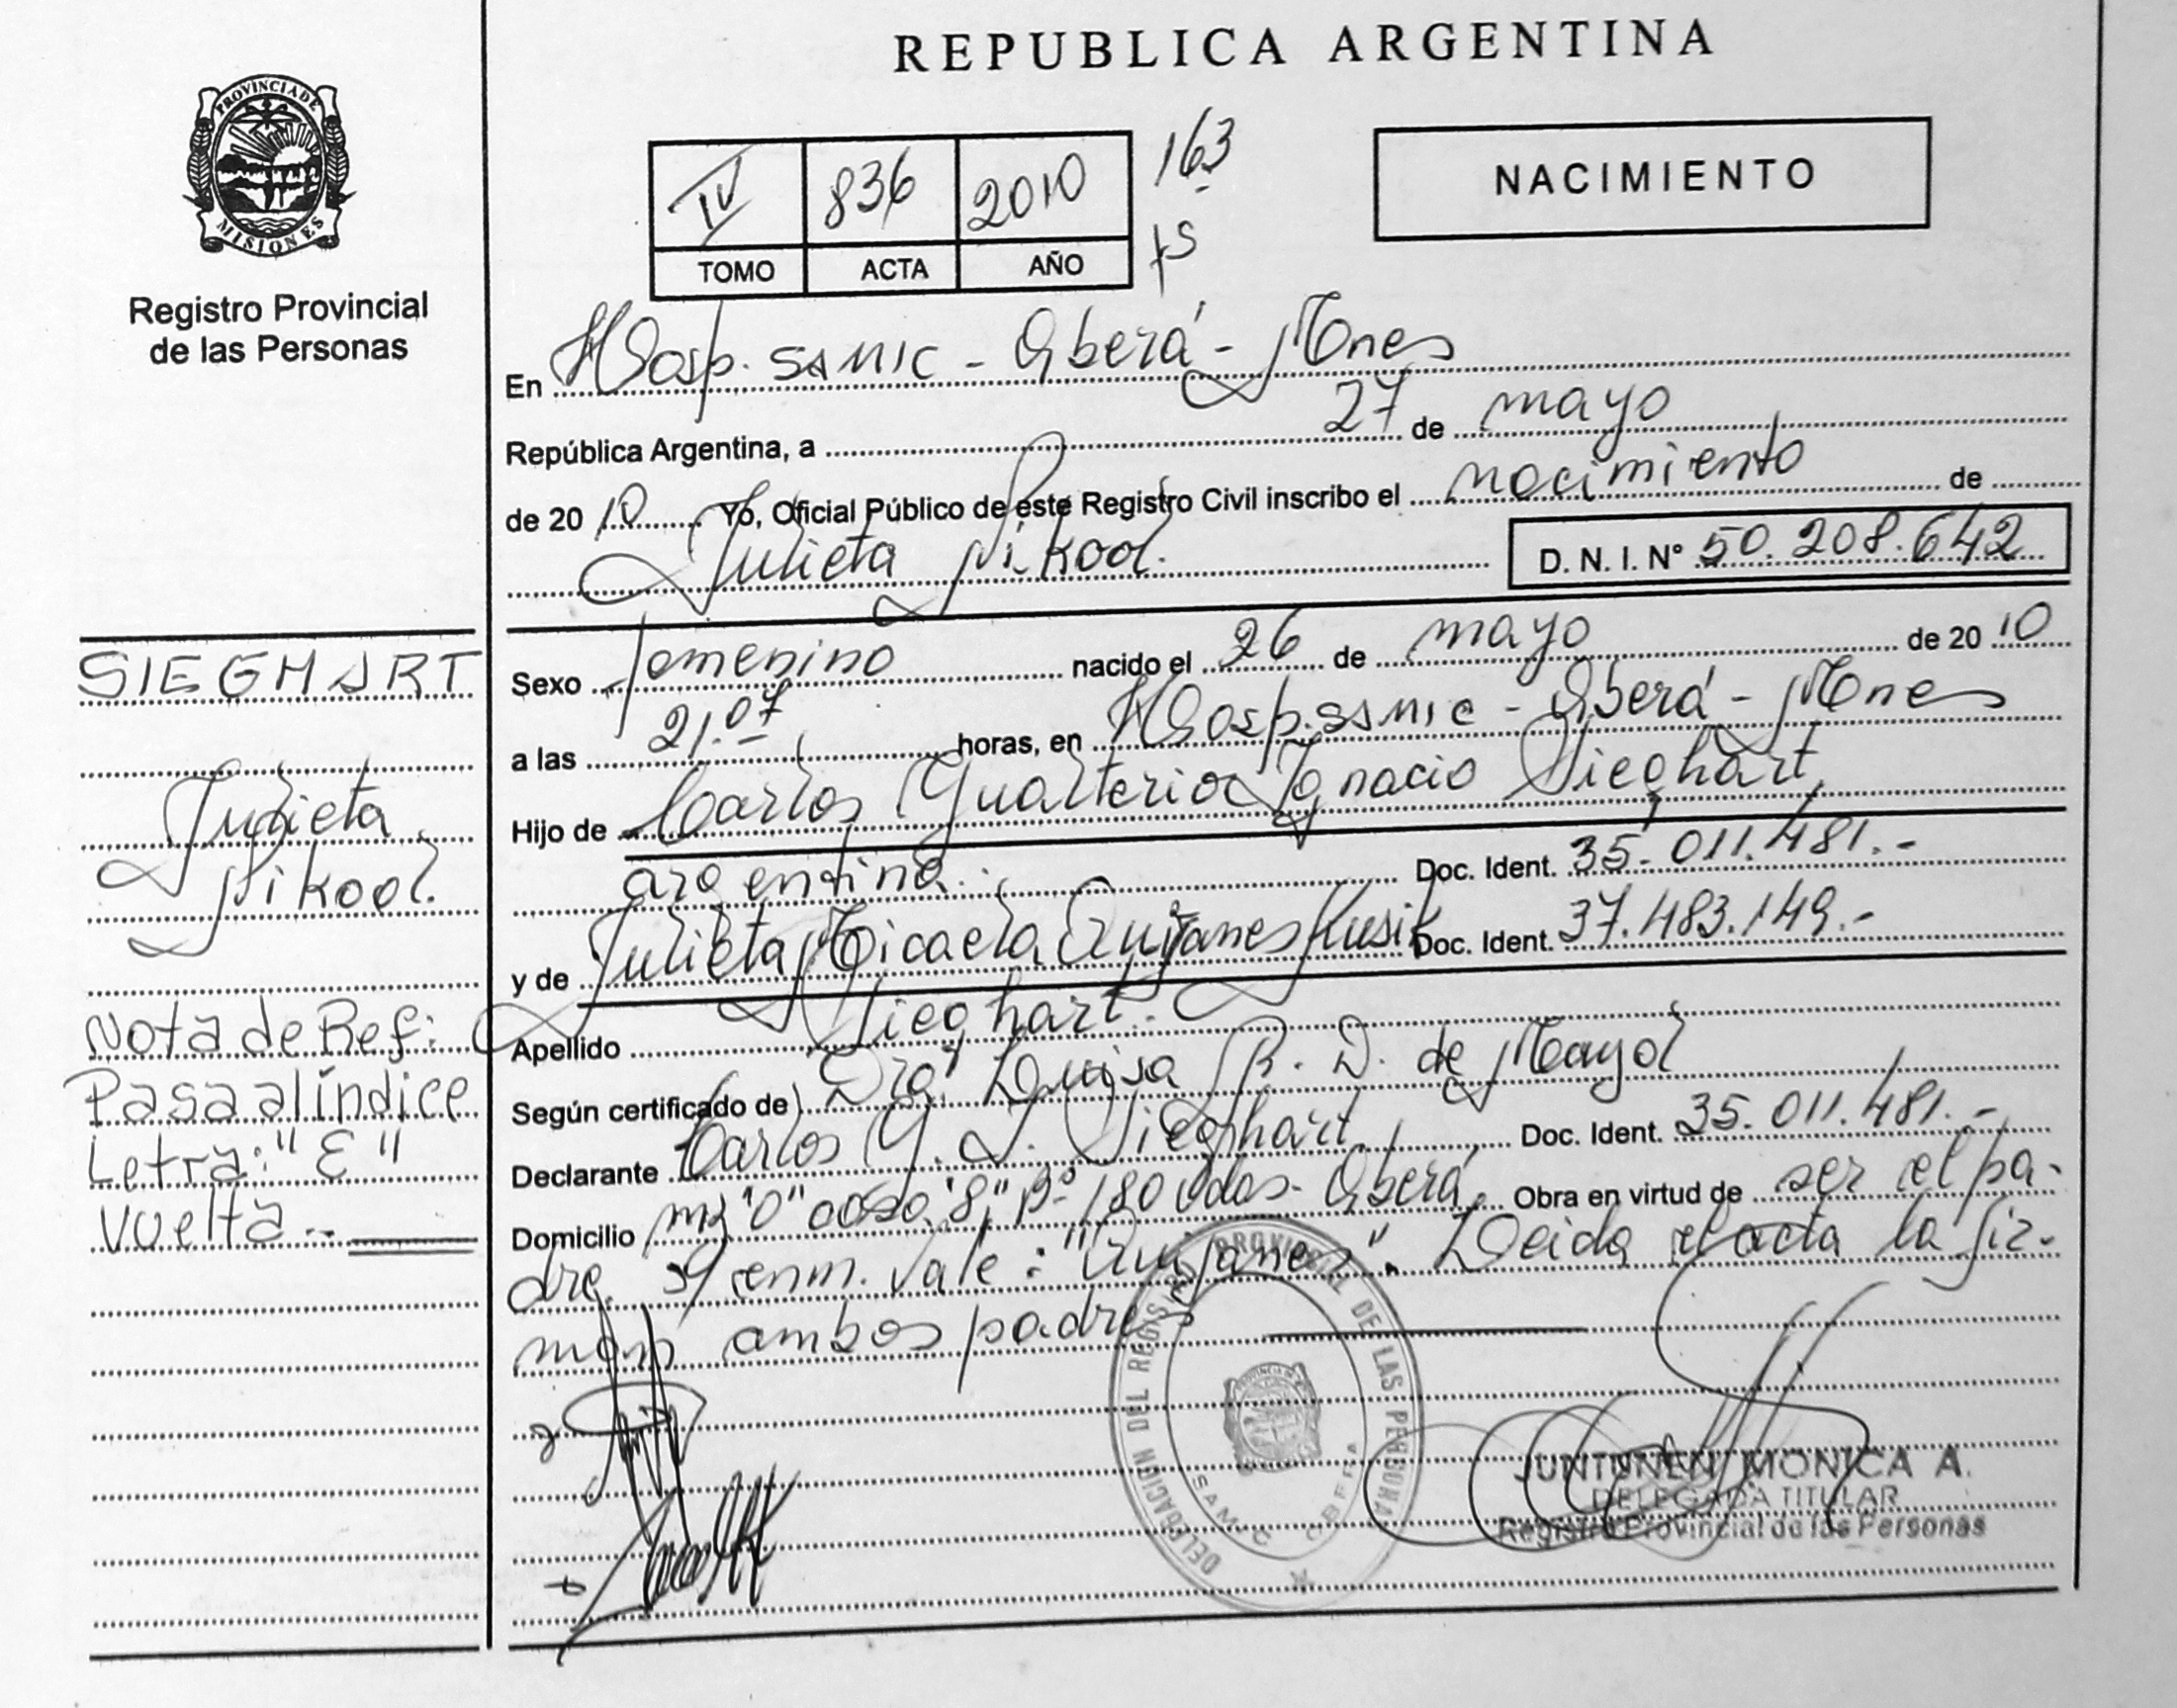 REPUBLICA ARGENTINA
PROVINCIA DE
MISIONES
Registro Provincial
de las Personas
IV 836 2010 163
TOMO ACTA AÑO fs
NACIMIENTO
En Hosp. SAMIC - Oberá - Mnes
República Argentina, a 27 de mayo
de 2010 Yo, Oficial Público de este Registro Civil inscribo el nacimiento de
Julieta Nikool. D. N. I. N° 50.208.642
Sexo femenino nacido el 26 de mayo de 2010
a las 21.07 horas, en Hosp. SAMIC - Oberá - Mnes
Hijo de Carlos Gualterio Ignacio Sieghart,
argentino. Doc. Ident. 35.011.481.-
y de Julieta Micaela Quijanes Doc. Ident. 37.483.149.-
Apellido Sieghart.
Según certificado de Dra. Luisa R. D. de Mayol
Declarante Carlos G. I. Sieghart, Doc. Ident. 35.011.481.-
Domicilio mz "O" casa "8", Bº 180 vdas - Oberá, Obra en virtud de ser el pa-
dre. S/ enm. Vale: "Quijanes". Leida el acta la fir-
man ambos padres
SIEGHART
Julieta
Nikool.
Nota de Ref:
Pasa al índice
Letra: "E"
Vuelta..
DELEGACION DEL REGISTRO PROVINCIAL DE LAS PERSONAS
SAMIC OBERA
JUNTUNEN MONICA A.
DELEGADA TITULAR
Registro Provincial de las Personas